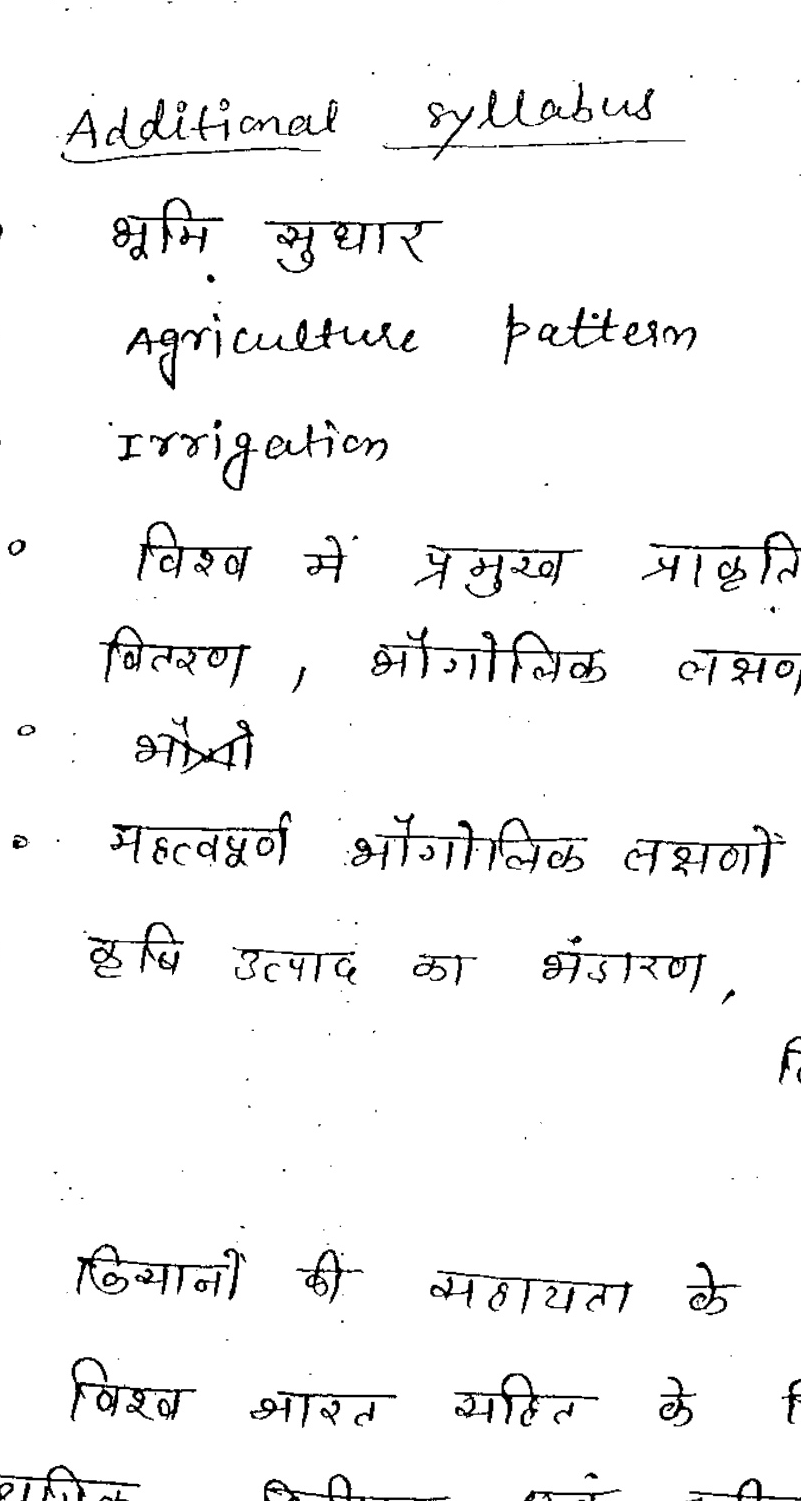 Additional syllabus
भूमि सुधार
Agriculture pattern
Irrigation
विश्व में प्रमुख
वितरण, भौगोलिक
महत्वपूर्ण भौगोलिक लक्षणों
कृषि उत्पाद का भंडारण,
किसानों की सहायता के
विश्व भारत सहित के